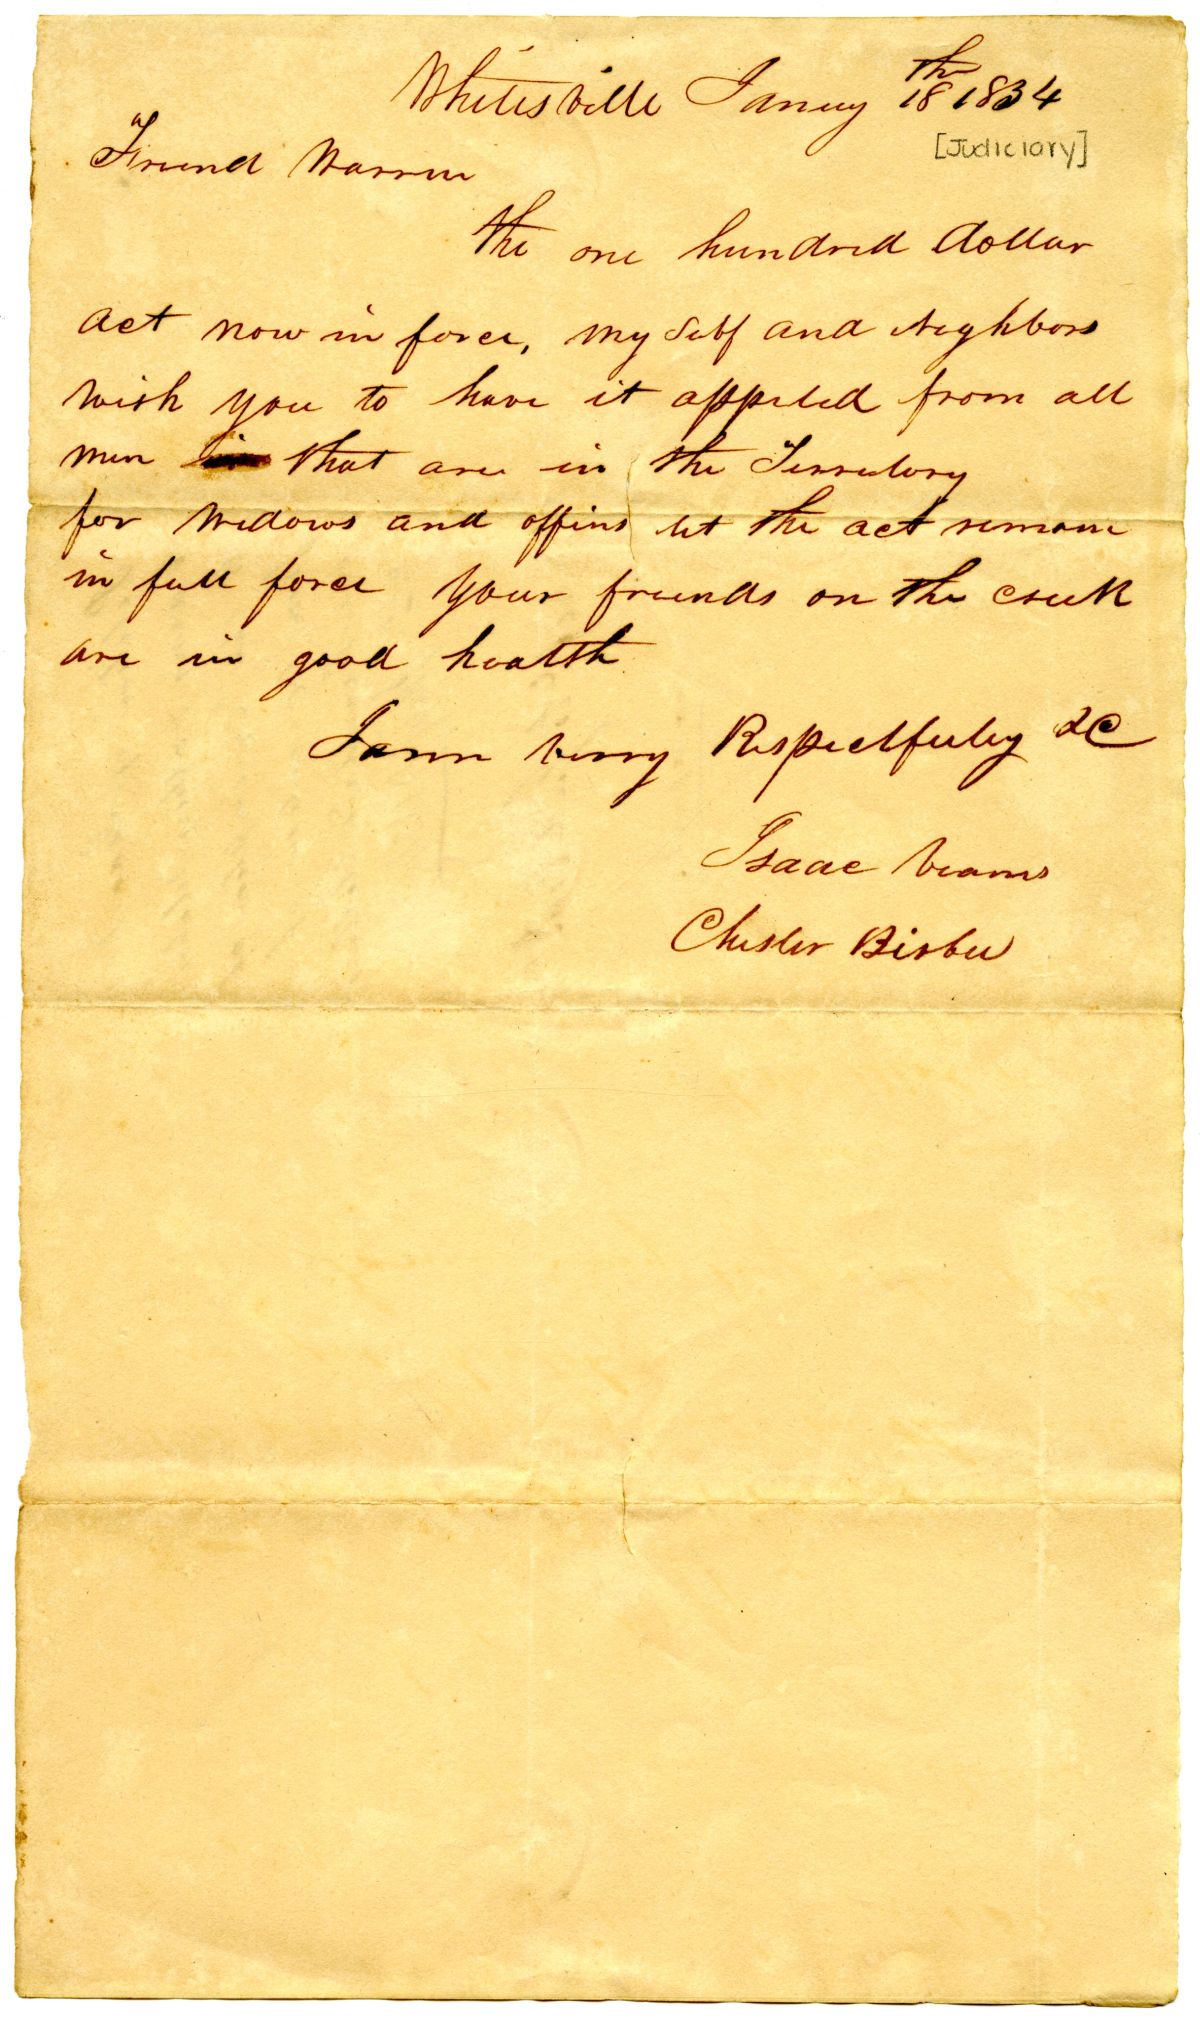 Whitesville Januy 18th 1834
[Judiciary]
Friend Warren
the one hundred dollar
act now in force, my Self and Neighbors
wish you to have it appeled from all
men that are in the Terretory
for widows and offins let the act remain
in full force your friends on the creek
are in good health
I am verry Respectfuley &C
Isaac
Chester Bisbee